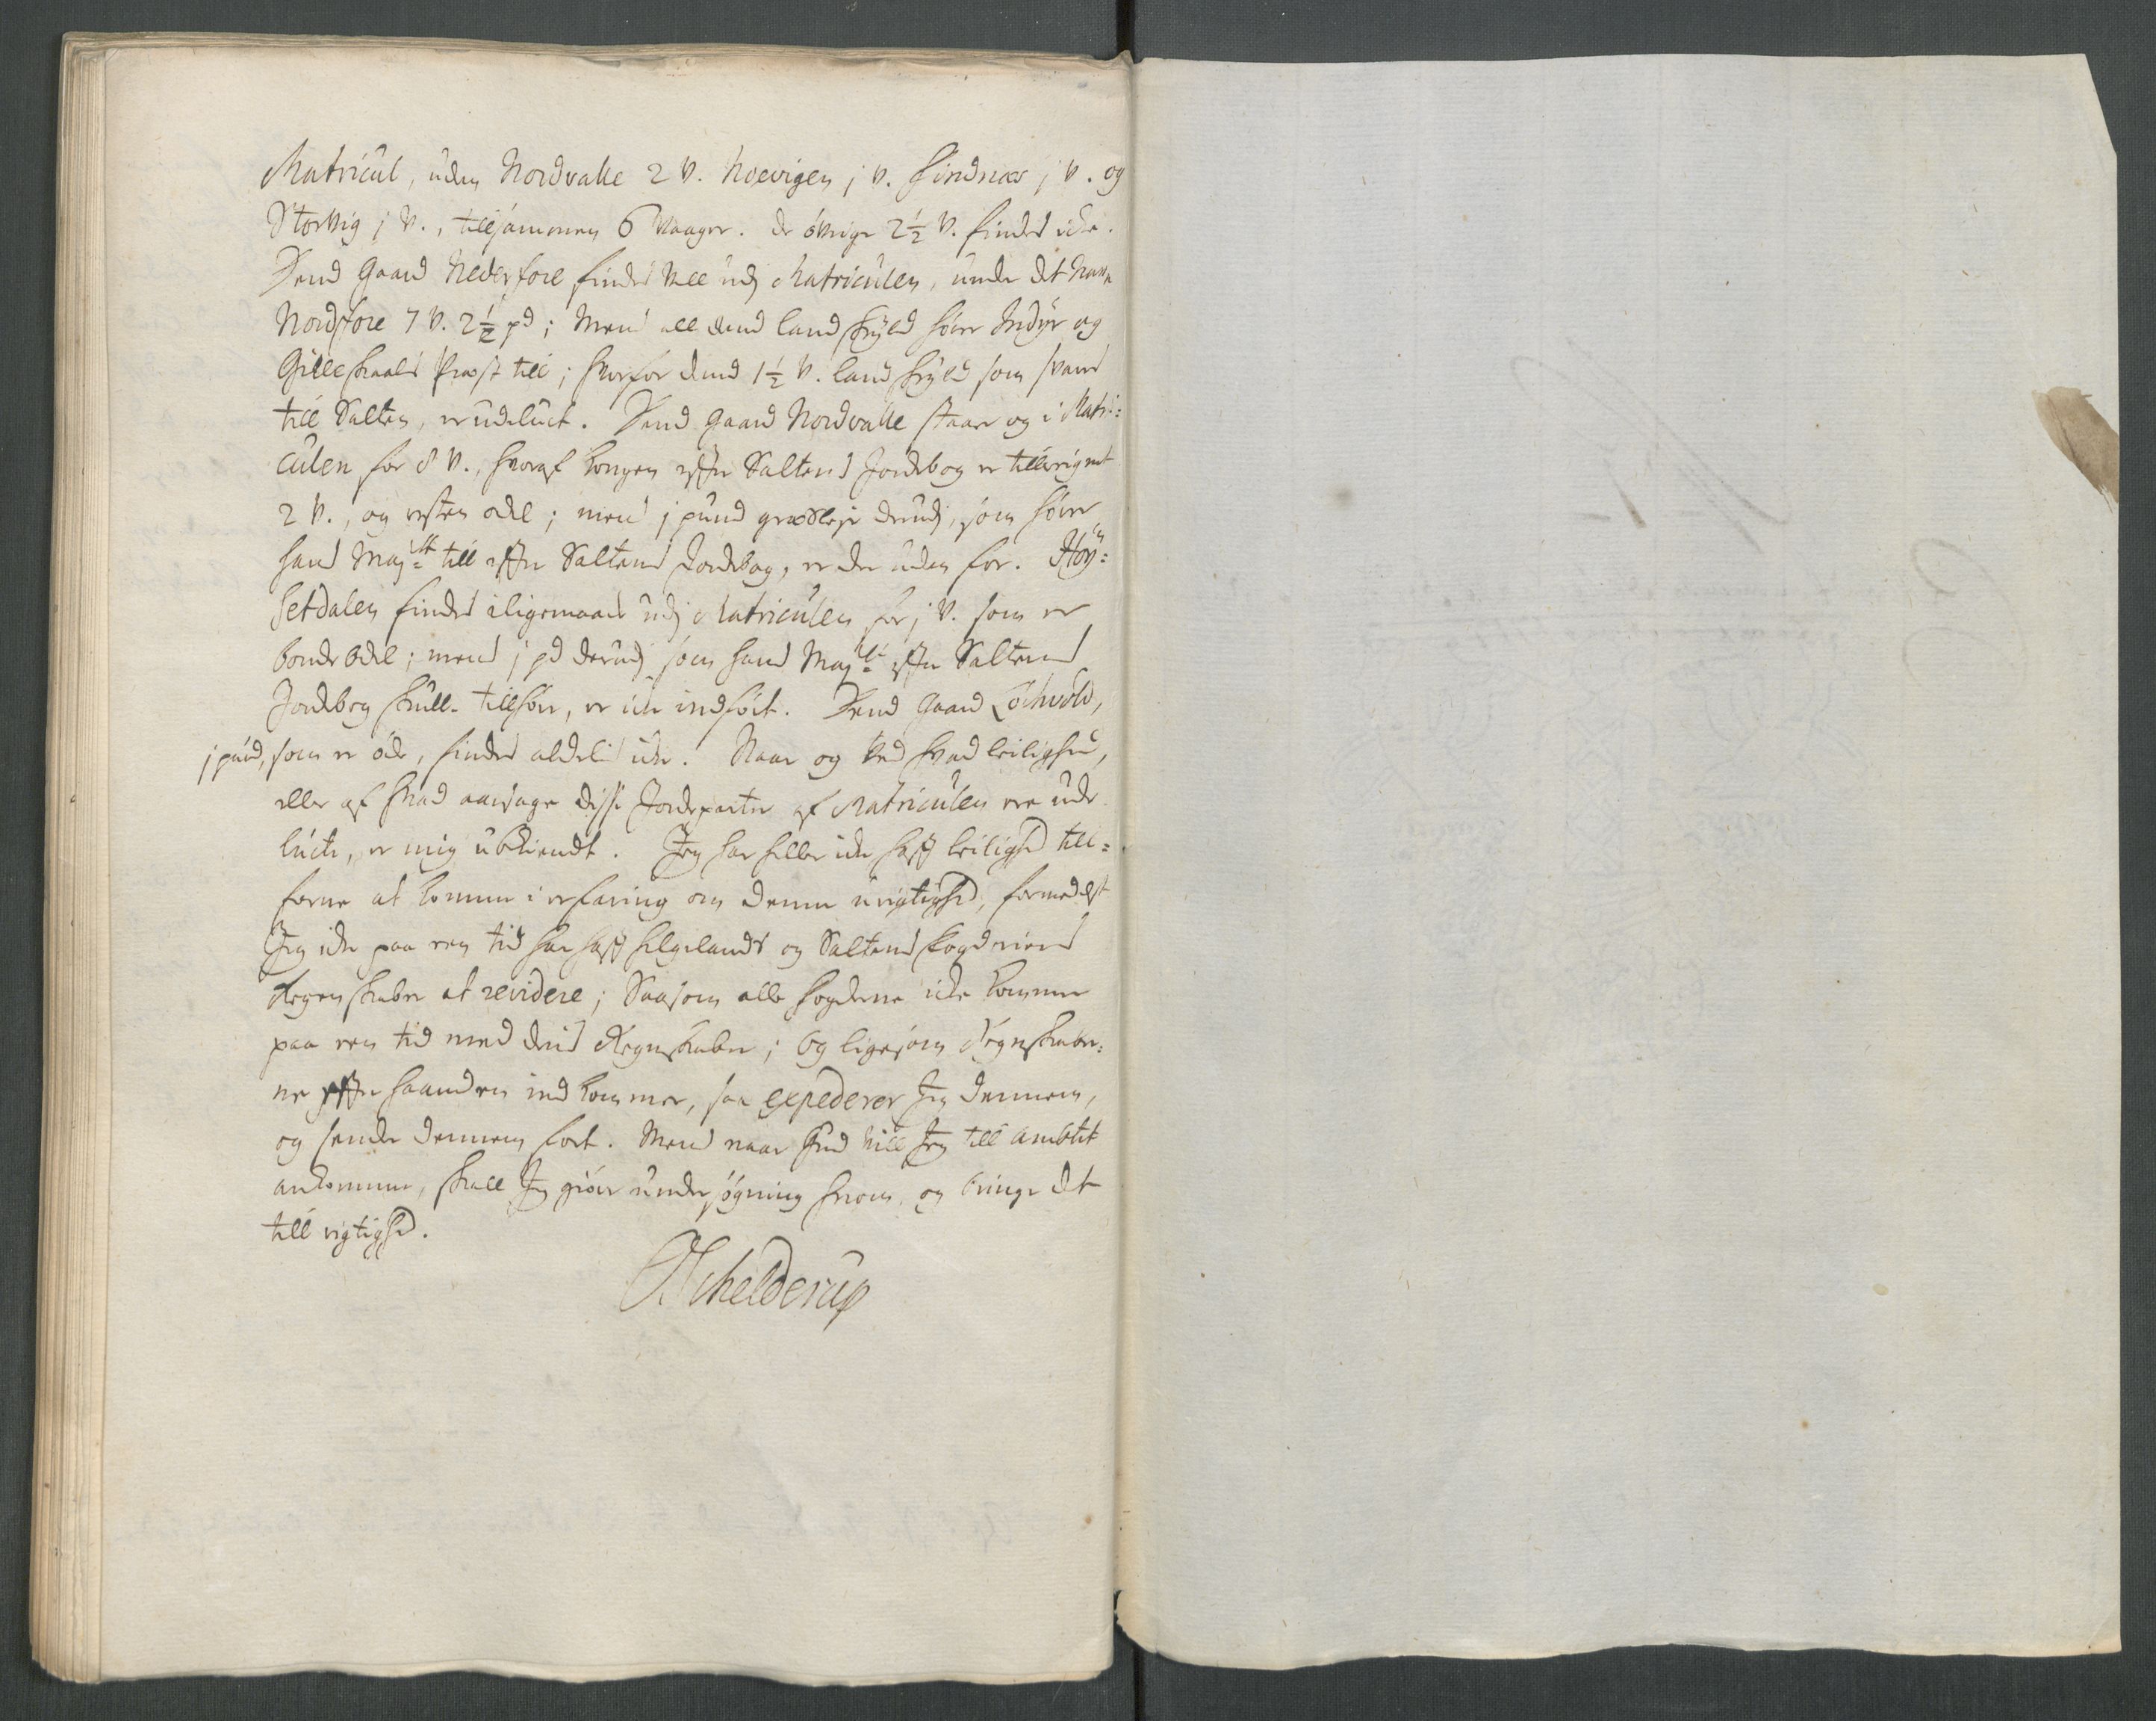 Matricul, uden Nordvalle 2 V. Noevigen j V. Findnæs j V. og
Storvig j V., tilsammen 6 Vaager. De øfrige 2½ V. findes icke.
Dend Gaard Nederfore findes vell udj Matriculen, under det Nafn
Nordfore 7 V. 2½ pd; Mens all dend landskyld hører Indyr og
Gilleskaals Præst till; hvorfor dend 1½ V. landskyld som svares
till Salten, er udeluct. Dend Gaard Nordvalle staar og i Matri=
culen for 8 V., hvoraf kongen efter Saltens Jordebog er tillegnet
2 V., og resten odel; mens j pund græsleje derudj, som hører
hans Maj:tt till efter Saltens Jordebog, er der uden for. Høy=
setdalen findes iligemaade udj Matriculen for j V. som er
bonde odel; mens j pd derudj som hans Maj:tt efter Saltens
Jordebog skulle tillhøre, er icke indført. Dend Gaard Lochvold,
j pund, som er øde, findes aldelis icke. Naar og ved hvad leilighed,
eller af hvad aarsage disse Jordeparter af Matriculen ere ude
lucte, er mig ubekiendt. Jeg har heller icke haft leilighed till=
forne at komme i erfaring om denne urigtighed, formedelst
Jeg icke paa een tid har haft Helgelands og Saltens fogderiers
Regenskaber at revidere; Saasom alle fogderne icke kommer
paa een tid med deris Regnskaber; og ligesom Regnskaber=
ne efter haanden indkommer, saa expederer Jeg dennem,
og sender dennem fort. Mens naar Gud vill Jeg till Ambtet
ankommer, skall Jeg giøre undersøgning herom, og bringe det
till rigtighed.
Schelderup